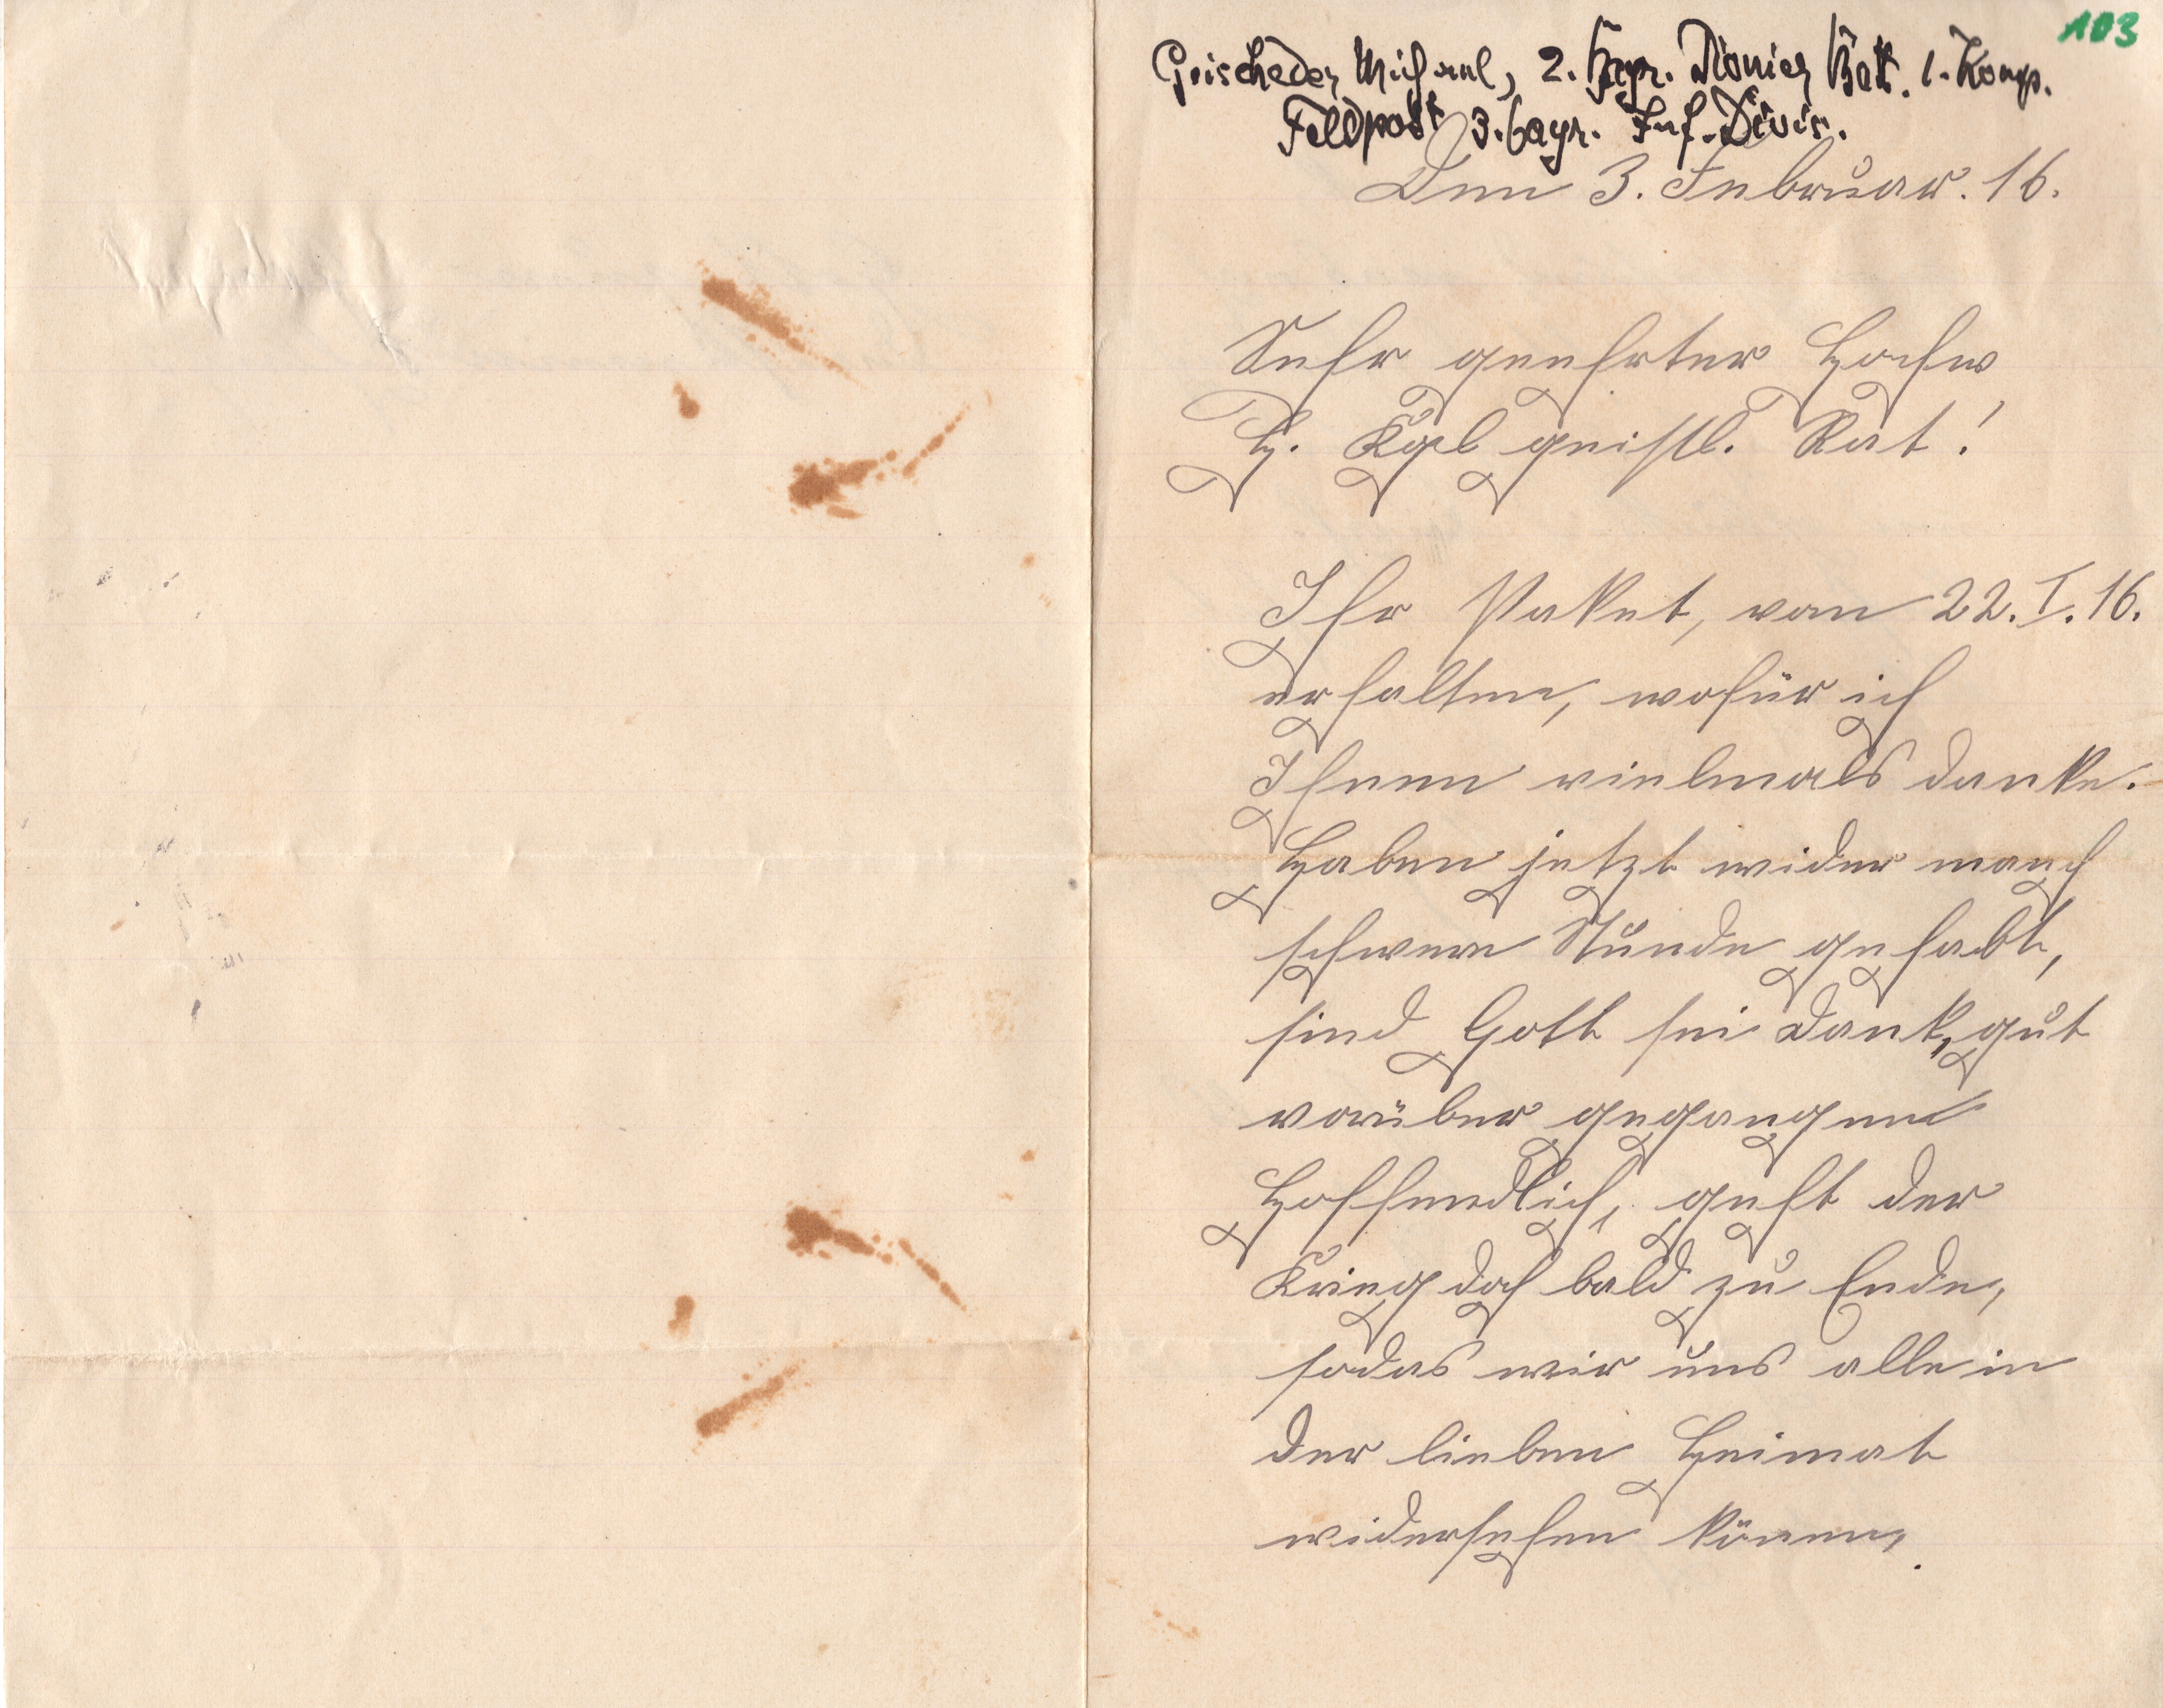 103
Grischeder Michael, 2. bayr. Pionier Batt. 1. Komp.
Feldpost 3. bayr. Inf. Divis.
Den 3. Februar. 16.
Sehr geehrter Hochw,
H. Kgl geistl. Rat!
Ihr Paket, vom 22. I. 16.
erhalten, wofür ich
Ihnen vielmals danke.
Haben jetzt wider manch
schwere Stunde gehabt,
sind Gott sei Dank, gut
vorüber gegangen
Hoffendlich, geht der
Krieg doch bald zu Ende,
sodas wir uns alle in
der lieben Heimat
widersehen können,